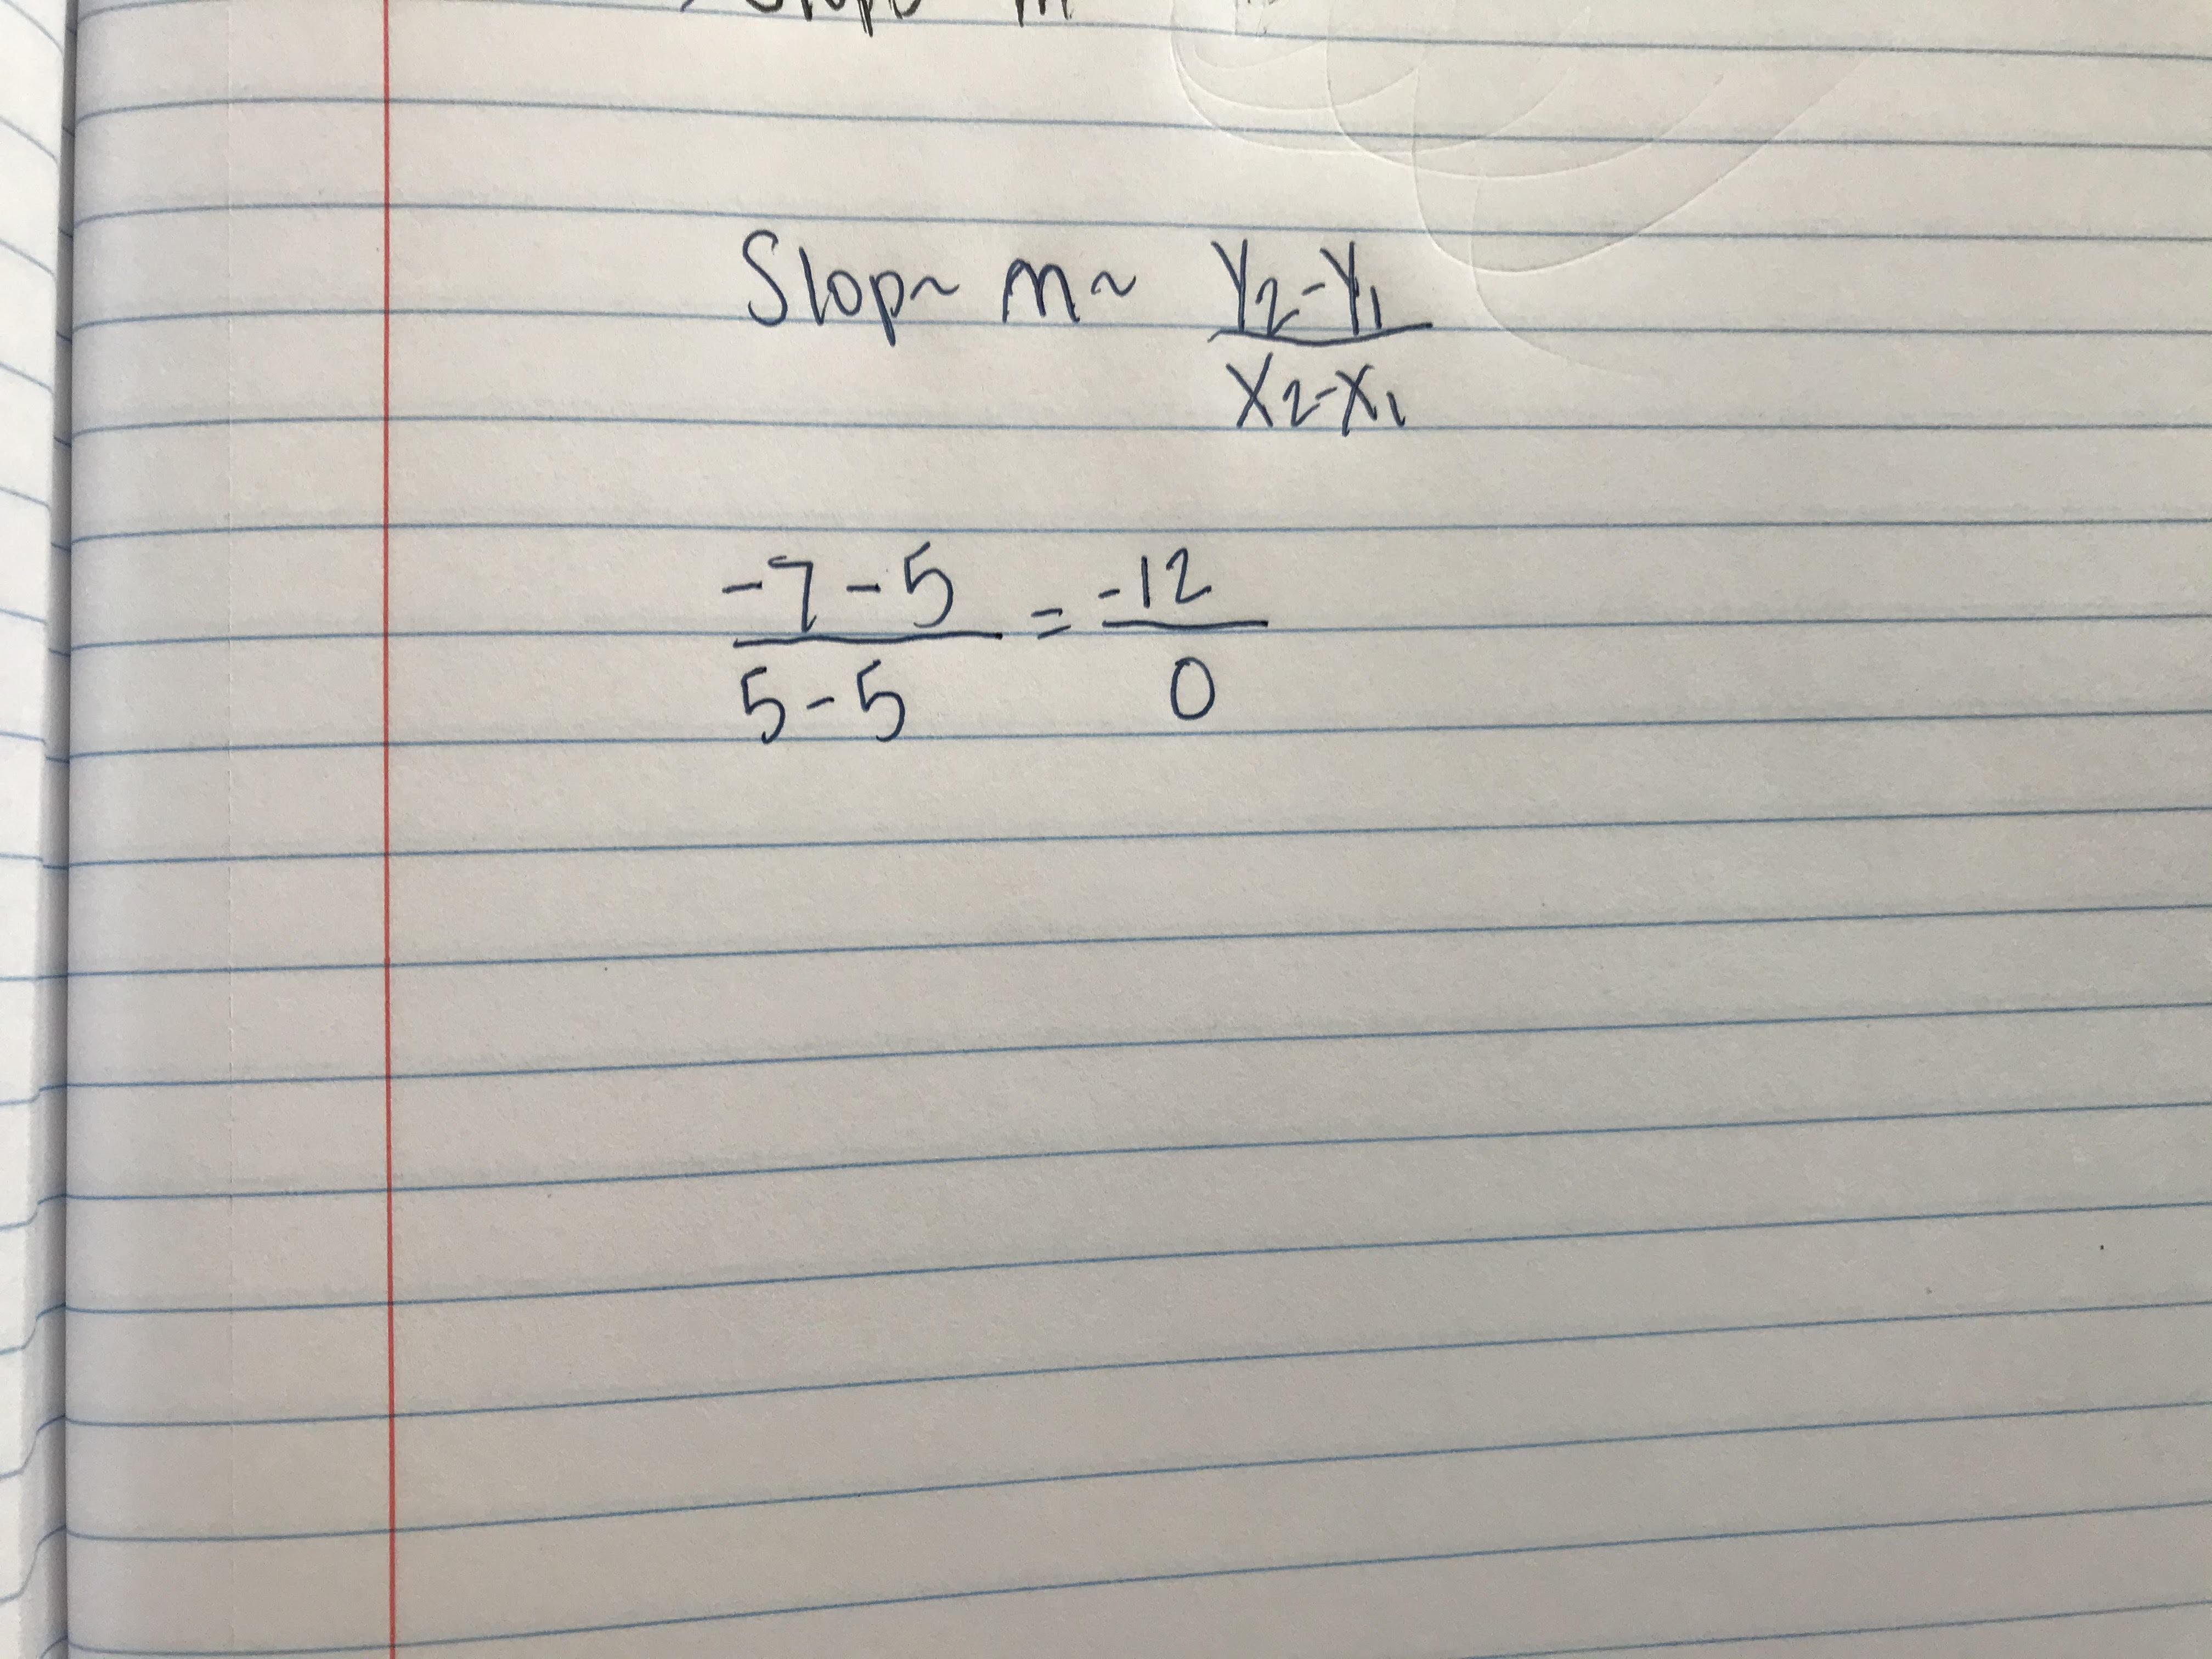 Slop~ m~ Y2-Y1
X2-X1
-7-5 = -12
5-5 0